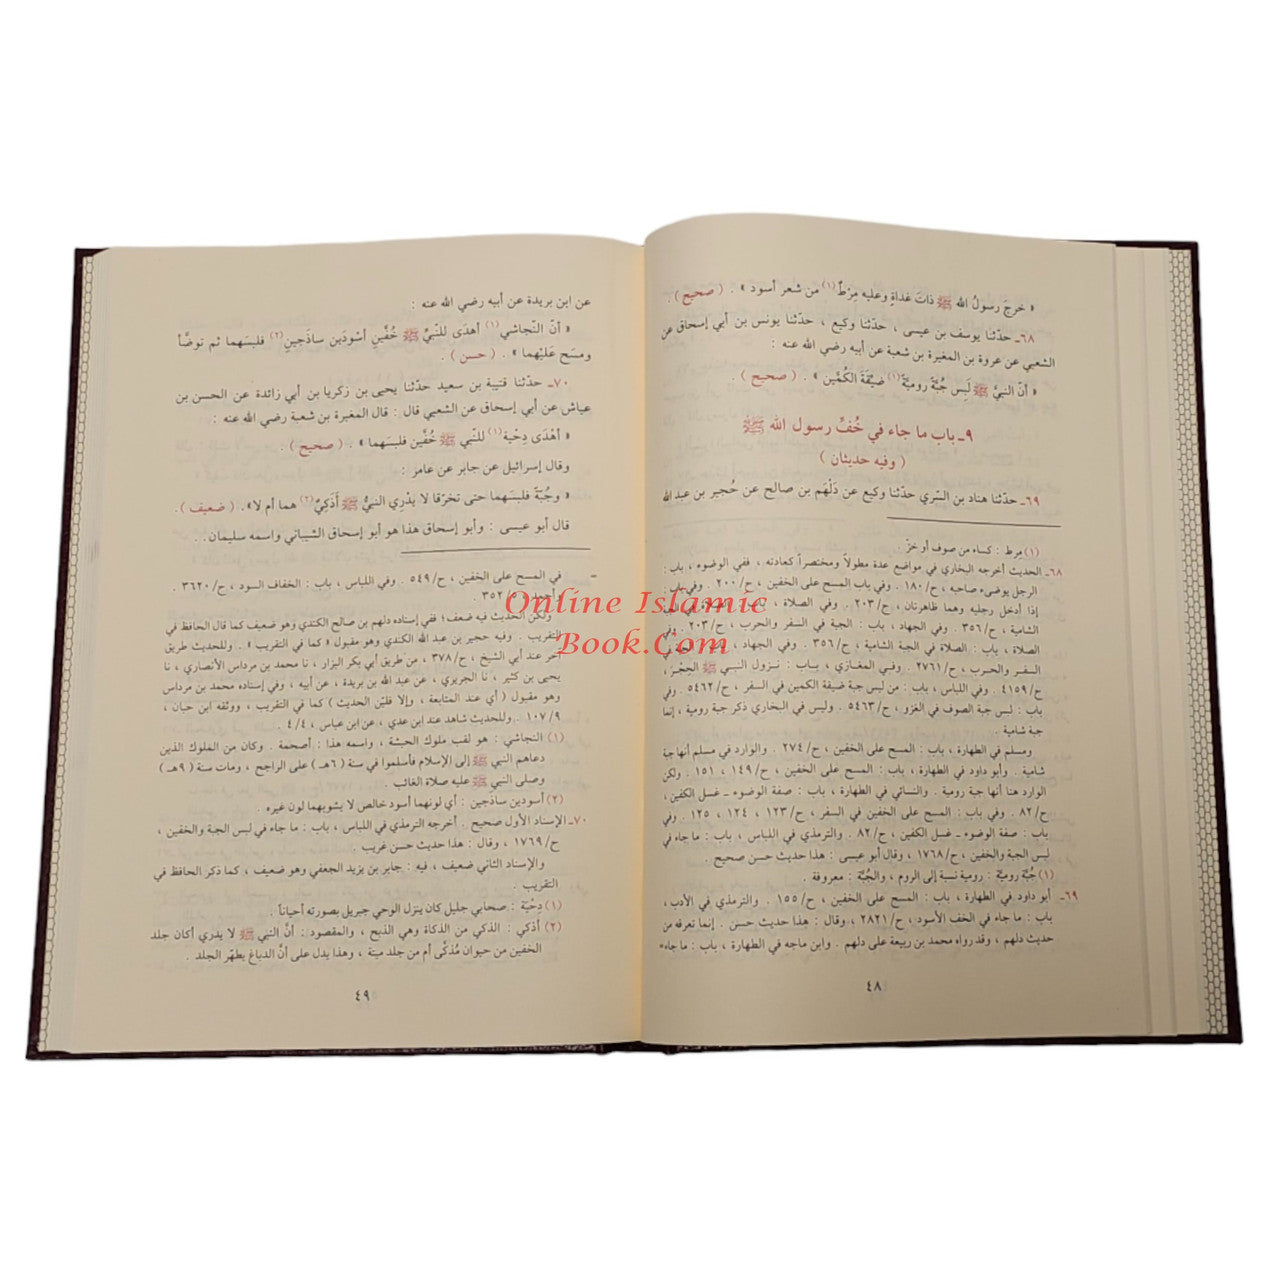 « خرجَ رسولُ الله ﷺ ذاتَ غداةٍ وعليه مِرْطٌ (١) من شعر أسود » . ( صحيح ) .
٦٨ـ حدّثنا يوسف بن عيسى ، حدّثنا وكيع ، حدّثنا يونس بن أبي إسحاق عن
الشعبي عن عروة بن المغيرة بن شعبة عن أبيه رضي الله عنه :
« أنّ النبيَّ ﷺ لَبِس جُبَّةً روميةً (١) ضيِّقةَ الكُمَّين » . ( صحيح ) .
٩ـ باب ما جاء في خُفِّ رسول الله ﷺ
( وفيه حديثان )
٦٩ـ حدّثنا هناد بن السّري حدّثنا وكيع عن دَلْهَم بن صالح عن حُجير بن عبد الله
(١) مِرط : كساء من صوف أو خزّ .
٦٨ـ الحديث أخرجه البخاري في مواضع عدة مطولاً ومختصراً كعادته ، ففي الوضوء ، باب :
الرجل يوضىء صاحبه ، ح/١٨٠ . وفي باب المسح على الخفين ، ح/٢٠٠ . وفي باب :
إذا أدخل رجليه وهما طاهرتان ، ح/٢٠٣ . وفي الصلاة ، باب : الصلاة في الجبة
الشامية ، ح/٣٥٦ . وفي الجهاد ، باب : الجبة في السفر والحرب ، ح/٢٠٣ . وفي
الصلاة ، باب : الصلاة في الجبة الشامية ، ح/٣٥٦ . وفي الجهاد ، باب : الجبة في
السفر والحرب ، ح/٢٧٦١ . وفي المغازي ، باب : نزول النبي ﷺ الحِجْرَ ،
ح/٤١٥٩ . وفي اللباس ، باب : من لبس جبة ضيقة الكمين في السفر ، ح/٥٤٦٢ . وفي
باب : لبس جبة الصوف في الغزو ، ح/٥٤٦٣ . وليس في البخاري ذكر جبة رومية ، إنما
جبة شامية .
ومسلم في الطهارة ، باب : المسح على الخفين ، ح/٢٧٤ . والوارد في مسلم أنها جبة
شامية . وأبو داود في الطهارة ، باب : المسح على الخفين ، ح/١٤٩ ، ١٥١ . ولكن
الوارد هنا أنها جبة رومية . والنسائي في الطهارة ، باب : صفة الوضوء ـ غسل الكفين ،
ح/٨٢ . وفي باب : المسح على الخفين في السفر ، ح/١٢٣ ، ١٢٤ ، ١٢٥ . وفي
باب : صفة الوضوء ـ غسل الكفين ، ح/٨٢ . والترمذي في اللباس ، باب : ما جاء في
لبس الجبة والخفين ، ح/١٧٦٨ ، وقال أبو عيسى : هذا حديث حسن صحيح .
(١) جُبّة روميّة : رومية نسبة إلى الروم ، والجُبّة : معروفة .
٦٩ـ أبو داود في الطهارة ، باب : المسح على الخفين ، ح/١٥٥ . والترمذي في الأدب ،
باب : ما جاء في الخف الأسود ، ح/٢٨٢١ ، وقال : هذا حديث حسن . إنما نعرفه من
حديث دلهم ، وقد رواه محمد بن ربيعة على دلهم . وابن ماجه في الطهارة ، باب : ما جاء=
٤٨
عن ابن بريدة عن أبيه رضي الله عنه :
« أنّ النّجاشي (١) أهدَى للنّبيِّ ﷺ خُفَّينِ أسْودَين ساذَجين (٢) فلبسَهما ثم توضَّأ
ومسَح عَليْهما » . ( حسن ) .
٧٠ـ حدّثنا قتيبة بن سعيد حدّثنا يحيى بن زكريا بن أبي زائدة عن الحسن بن
عياش عن أبي إسحاق عن الشعبي قال : قال المغيرة بن شعبة رضي الله عنه :
« أهْدَى دِحْية (١) للنّبي ﷺ خُفَّين فلبسَهما » . ( صحيح ) .
وقال إسرائيل عن جابر عن عامر :
« وجُبّةً فلبسَهما حتى تخرّقا لا يدْري النبيُّ ﷺ أَذَكِيٌّ (٢) هما أم لا» . ( ضعيف ) .
قال أبو عيسى : وأبو إسحاق هذا هو أبو إسحاق الشيباني واسمه سليمان . .
= في المسح على الخفين ، ح/٥٤٩ . وفي اللباس ، باب : الخفاف السود ، ح/٣٦٢٠ .
وأحمد ٥/٣٥٢ .
ولكن الحديث فيه ضعف؛ ففي إسناده دلهم بن صالح الكندي وهو ضعيف كما قال الحافظ في
التقريب . وفيه حجير بن عبد الله الكندي وهو مقبول « كما في التقريب » . وللحديث طريق
آخر عند أبي الشيخ ، ح/٣٧٨ ، من طريق أبي بكر البزار ، نا محمد بن مرداس الأنصاري ، نا
يحيى بن كثير ، نا الجريري ، عن عبد الله بن بريدة ، عن أبيه ، وفي إسناده محمد بن مرداس
وهو مقبول ( أي عند المتابعة ، وإلا فليّن الحديث ) كما في التقريب ، ووثقه ابن حبان ،
٩/١٠٧ . وللحديث شاهد عند ابن عدي ، عن ابن عباس ، ٤/٤ .
(١) النجاشي : هو لقب ملوك الحبشة ، واسمه هذا : أصحمة . وكان من الملوك الذين
دعاهم النبي ﷺ إلى الإسلام فأسلموا في سنة (٦هـ) على الراجح ، ومات سنة (٩هـ)
وصلى النبي ﷺ عليه صلاة الغائب .
(٢) أسودين ساذجين : أي لونهما أسود خالص لا يشوبهما لون غيره .
٧٠ـ الإسناد الأول صحيح . أخرجه الترمذي في اللباس ، باب : ما جاء في لبس الجبة والخفين ،
ح/١٧٦٩ ، وقال : هذا حديث حسن غريب .
والإسناد الثاني ضعيف ، فيه : جابر بن يزيد الجعفي وهو ضعيف ، كما ذكر الحافظ في
التقريب .
(١) دِحْيَة : صحابي جليل كان ينزل الوحي جبريل بصورته أحياناً .
(٢) أذكي : الذكي من الذكاة وهي الذبح ، والمقصود : أنَّ النبي ﷺ لا يدري أكان جلد
الخفين من حيوان مُذكّى أم من جلد ميتة ، وهذا يدل على أنّ الدباغ يطهّر الجلد .
٤٩
Online Islamic
Book.Com